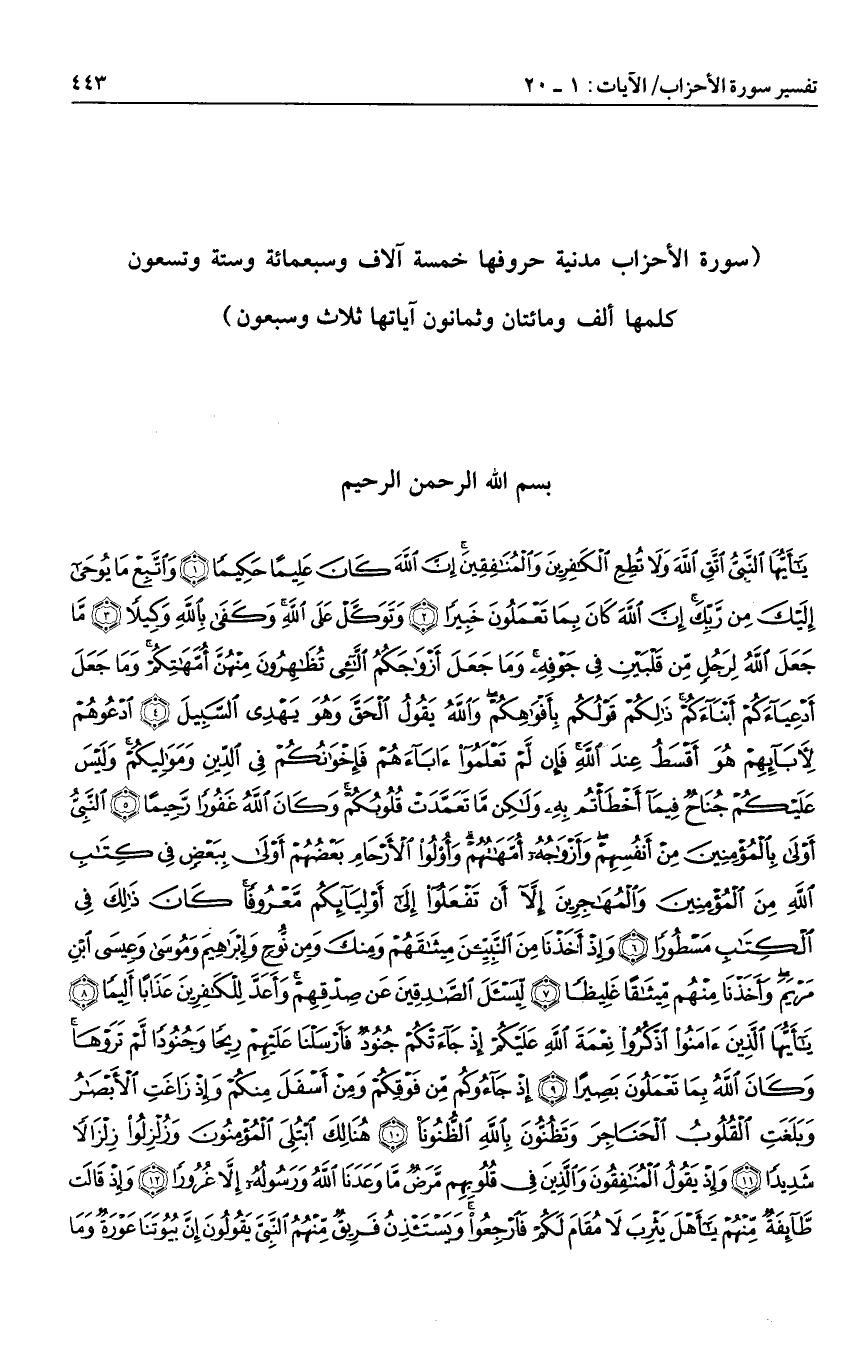 تفسير سورة الأحزاب/ الآيات: ١ - ٢٠ ٤٤٣
(سورة الأحزاب مدنية حروفها خمسة آلاف وسبعمائة وستة وتسعون
كلمها ألف ومائتان وثمانون آياتها ثلاث وسبعون)
بسم الله الرحمن الرحيم
يَـٰٓأَيُّهَا ٱلنَّبِىُّ ٱتَّقِ ٱللَّهَ وَلَا تُطِعِ ٱلْكَـٰفِرِينَ وَٱلْمُنَـٰفِقِينَ ۗ إِنَّ ٱللَّهَ كَانَ عَلِيمًا حَكِيمًا ١ وَٱتَّبِعْ مَا يُوحَىٰٓ
إِلَيْكَ مِن رَّبِّكَ ۚ إِنَّ ٱللَّهَ كَانَ بِمَا تَعْمَلُونَ خَبِيرًا ٢ وَتَوَكَّلْ عَلَى ٱللَّهِ ۚ وَكَفَىٰ بِٱللَّهِ وَكِيلًا ٣ مَّا
جَعَلَ ٱللَّهُ لِرَجُلٍ مِّن قَلْبَيْنِ فِى جَوْفِهِۦ ۚ وَمَا جَعَلَ أَزْوَٰجَكُمُ ٱلَّـٰٓـِٔى تُظَـٰهِرُونَ مِنْهُنَّ أُمَّهَـٰتِكُمْ ۚ وَمَا جَعَلَ
أَدْعِيَآءَكُمْ أَبْنَآءَكُمْ ۚ ذَٰلِكُمْ قَوْلُكُم بِأَفْوَٰهِكُمْ ۖ وَٱللَّهُ يَقُولُ ٱلْحَقَّ وَهُوَ يَهْدِى ٱلسَّبِيلَ ٤ ٱدْعُوهُمْ
لِـَٔابَآئِهِمْ هُوَ أَقْسَطُ عِندَ ٱللَّهِ ۚ فَإِن لَّمْ تَعْلَمُوٓا۟ ءَابَآءَهُمْ فَإِخْوَٰنُكُمْ فِى ٱلدِّينِ وَمَوَٰلِيكُمْ ۚ وَلَيْسَ
عَلَيْكُمْ جُنَاحٌ فِيمَآ أَخْطَأْتُم بِهِۦ وَلَـٰكِن مَّا تَعَمَّدَتْ قُلُوبُكُمْ ۚ وَكَانَ ٱللَّهُ غَفُورًا رَّحِيمًا ٥ ٱلنَّبِىُّ
أَوْلَىٰ بِٱلْمُؤْمِنِينَ مِنْ أَنفُسِهِمْ ۖ وَأَزْوَٰجُهُۥٓ أُمَّهَـٰتُهُمْ ۗ وَأُو۟لُوا۟ ٱلْأَرْحَامِ بَعْضُهُمْ أَوْلَىٰ بِبَعْضٍ فِى كِتَـٰبِ
ٱللَّهِ مِنَ ٱلْمُؤْمِنِينَ وَٱلْمُهَـٰجِرِينَ إِلَّآ أَن تَفْعَلُوٓا۟ إِلَىٰٓ أَوْلِيَآئِكُم مَّعْرُوفًا ۚ كَانَ ذَٰلِكَ فِى
ٱلْكِتَـٰبِ مَسْطُورًا ٦ وَإِذْ أَخَذْنَا مِنَ ٱلنَّبِيِّـۧنَ مِيثَـٰقَهُمْ وَمِنكَ وَمِن نُّوحٍ وَإِبْرَٰهِيمَ وَمُوسَىٰ وَعِيسَى ٱبْنِ
مَرْيَمَ ۖ وَأَخَذْنَا مِنْهُم مِّيثَـٰقًا غَلِيظًا ٧ لِّيَسْـَٔلَ ٱلصَّـٰدِقِينَ عَن صِدْقِهِمْ ۚ وَأَعَدَّ لِلْكَـٰفِرِينَ عَذَابًا أَلِيمًا ٨
يَـٰٓأَيُّهَا ٱلَّذِينَ ءَامَنُوا۟ ٱذْكُرُوا۟ نِعْمَةَ ٱللَّهِ عَلَيْكُمْ إِذْ جَآءَتْكُمْ جُنُودٌ فَأَرْسَلْنَا عَلَيْهِمْ رِيحًا وَجُنُودًا لَّمْ تَرَوْهَا ۚ
وَكَانَ ٱللَّهُ بِمَا تَعْمَلُونَ بَصِيرًا ٩ إِذْ جَآءُوكُم مِّن فَوْقِكُمْ وَمِنْ أَسْفَلَ مِنكُمْ وَإِذْ زَاغَتِ ٱلْأَبْصَـٰرُ
وَبَلَغَتِ ٱلْقُلُوبُ ٱلْحَنَاجِرَ وَتَظُنُّونَ بِٱللَّهِ ٱلظُّنُونَا۠ ١٠ هُنَالِكَ ٱبْتُلِىَ ٱلْمُؤْمِنُونَ وَزُلْزِلُوا۟ زِلْزَالًا
شَدِيدًا ١١ وَإِذْ يَقُولُ ٱلْمُنَـٰفِقُونَ وَٱلَّذِينَ فِى قُلُوبِهِم مَّرَضٌ مَّا وَعَدَنَا ٱللَّهُ وَرَسُولُهُۥٓ إِلَّا غُرُورًا ١٢ وَإِذْ قَالَت
طَّآئِفَةٌ مِّنْهُمْ يَـٰٓأَهْلَ يَثْرِبَ لَا مُقَامَ لَكُمْ فَٱرْجِعُوا۟ ۚ وَيَسْتَـْٔذِنُ فَرِيقٌ مِّنْهُمُ ٱلنَّبِىَّ يَقُولُونَ إِنَّ بُيُوتَنَا عَوْرَةٌ وَمَا